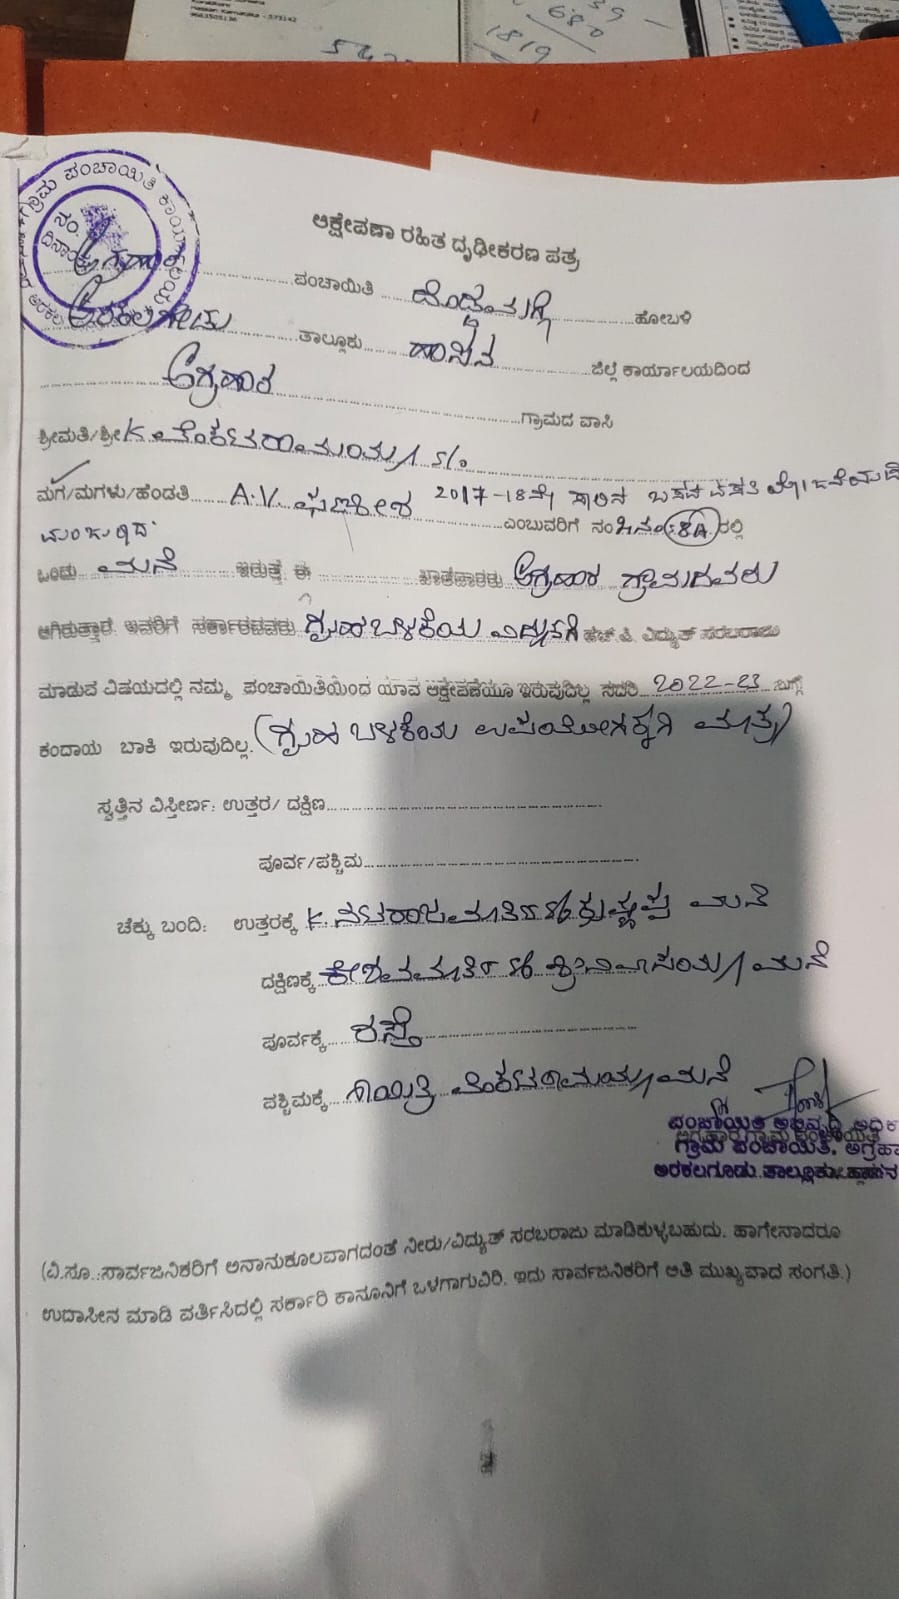 Hassan Karnataka - 573142
9663505136
680
1819
ಗ್ರಾಮ ಪಂಚಾಯಿತಿ ಕಾರ್ಯಾಲಯ
ಆಕ್ಷೇಪಣಾ ರಹಿತ ದೃಢೀಕರಣ ಪತ್ರ
ಅಗ್ರಹಾರ ಪಂಚಾಯಿತಿ ದೊಡ್ಡಮಗ್ಗೆ ಹೋಬಳಿ
ಅರಕಲಗೂಡು ತಾಲ್ಲೂಕು ಹಾಸನ ಜಿಲ್ಲೆ ಕಾರ್ಯಾಲಯದಿಂದ
ಅಗ್ರಹಾರ ಗ್ರಾಮದ ವಾಸಿ
ಶ್ರೀಮತಿ/ಶ್ರೀ K. ವೆಂಕಟರಾಮಯ್ಯ S/o
ಮಗ/ಮಗಳು/ಹೆಂಡತಿ A.V. 2017-18ನೇ ಸಾಲಿನ ಬಸವ ವಸತಿ ಯೋಜನೆಯಡಿ
ಮಂಜೂರಿದ ಎಂಬುವರಿಗೆ ನಂ 8A ರಲ್ಲಿ
ಒಂದು ಮನೆ ಇರುತ್ತೆ ಈ ಖಾತೆದಾರರು ಅಗ್ರಹಾರ ಗ್ರಾಮದವರು
ಆಗಿರುತ್ತಾರೆ. ಇವರಿಗೆ ಸರ್ಕಾರದವರು ಗೃಹ ಬಳಕೆಯ ಹೆಚ್.ಪಿ. ವಿದ್ಯುತ್ ಸರಬರಾಜು
ಮಾಡುವ ವಿಷಯದಲ್ಲಿ ನಮ್ಮ ಪಂಚಾಯಿತಿಯಿಂದ ಯಾವ ಆಕ್ಷೇಪಣೆಯೂ ಇರುವುದಿಲ್ಲ ಸದರಿ 2022-23
ಕಂದಾಯ ಬಾಕಿ ಇರುವುದಿಲ್ಲ. (ಗೃಹ ಬಳಕೆಯ ಉಪಯೋಗಕ್ಕಾಗಿ ಮಾತ್ರ)
ಸ್ವತ್ತಿನ ವಿಸ್ತೀರ್ಣ: ಉತ್ತರ/ ದಕ್ಷಿಣ
ಪೂರ್ವ/ಪಶ್ಚಿಮ
ಚೆಕ್ಕು ಬಂದಿ: ಉತ್ತರಕ್ಕೆ K. ನಟರಾಜಮೂರ್ತಿ S/o ಕೃಷ್ಣಪ್ಪ ಮನೆ
ದಕ್ಷಿಣಕ್ಕೆ ಕೇಶವಮೂರ್ತಿ S/o ಶ್ರೀನಿವಾಸಯ್ಯ ಮನೆ
ಪೂರ್ವಕ್ಕೆ ರಸ್ತೆ
ಪಶ್ಚಿಮಕ್ಕೆ ಗಾಯಿತ್ರಿ ವೆಂಕಟರಾಮಯ್ಯ ಮನೆ
ಪಂಚಾಯಿತಿ ಅಭಿವೃದ್ಧಿ ಅಧಿಕ
ಗ್ರಾಮ ಪಂಚಾಯಿತಿ, ಅಗ್ರಹಾ
ಅರಕಲಗೂಡು ತಾಲ್ಲೂಕು
(ವಿ.ಸೂ.:ಸಾರ್ವಜನಿಕರಿಗೆ ಅನಾನುಕೂಲವಾಗದಂತೆ ನೀರು/ವಿದ್ಯುತ್ ಸರಬರಾಜು ಮಾಡಿಕುಳ್ಳಬಹುದು. ಹಾಗೇನಾದರೂ
ಉದಾಸೀನ ಮಾಡಿ ವರ್ತಿಸಿದಲ್ಲಿ ಸರ್ಕಾರಿ ಕಾನೂನಿಗೆ ಒಳಗಾಗುವಿರಿ. ಇದು ಸಾರ್ವಜನಿಕರಿಗೆ ಅತಿ ಮುಖ್ಯವಾದ ಸಂಗತಿ.)